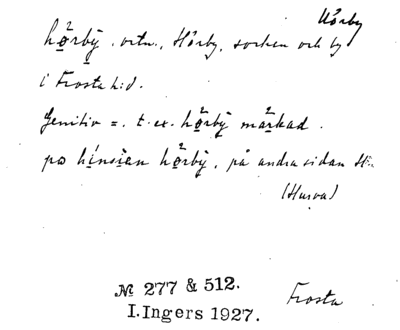 Hörby
hø̱rbȳ. ortn., Hörby, socken och by
i Frosta hd.
Genitiv =. t. ex. hø̱rbȳ ma̱rkad.
po hinsian hø̱rbȳ, på andra sidan
(Hurva)
№ 277 & 512.
I. Ingers 1927.
Frosta